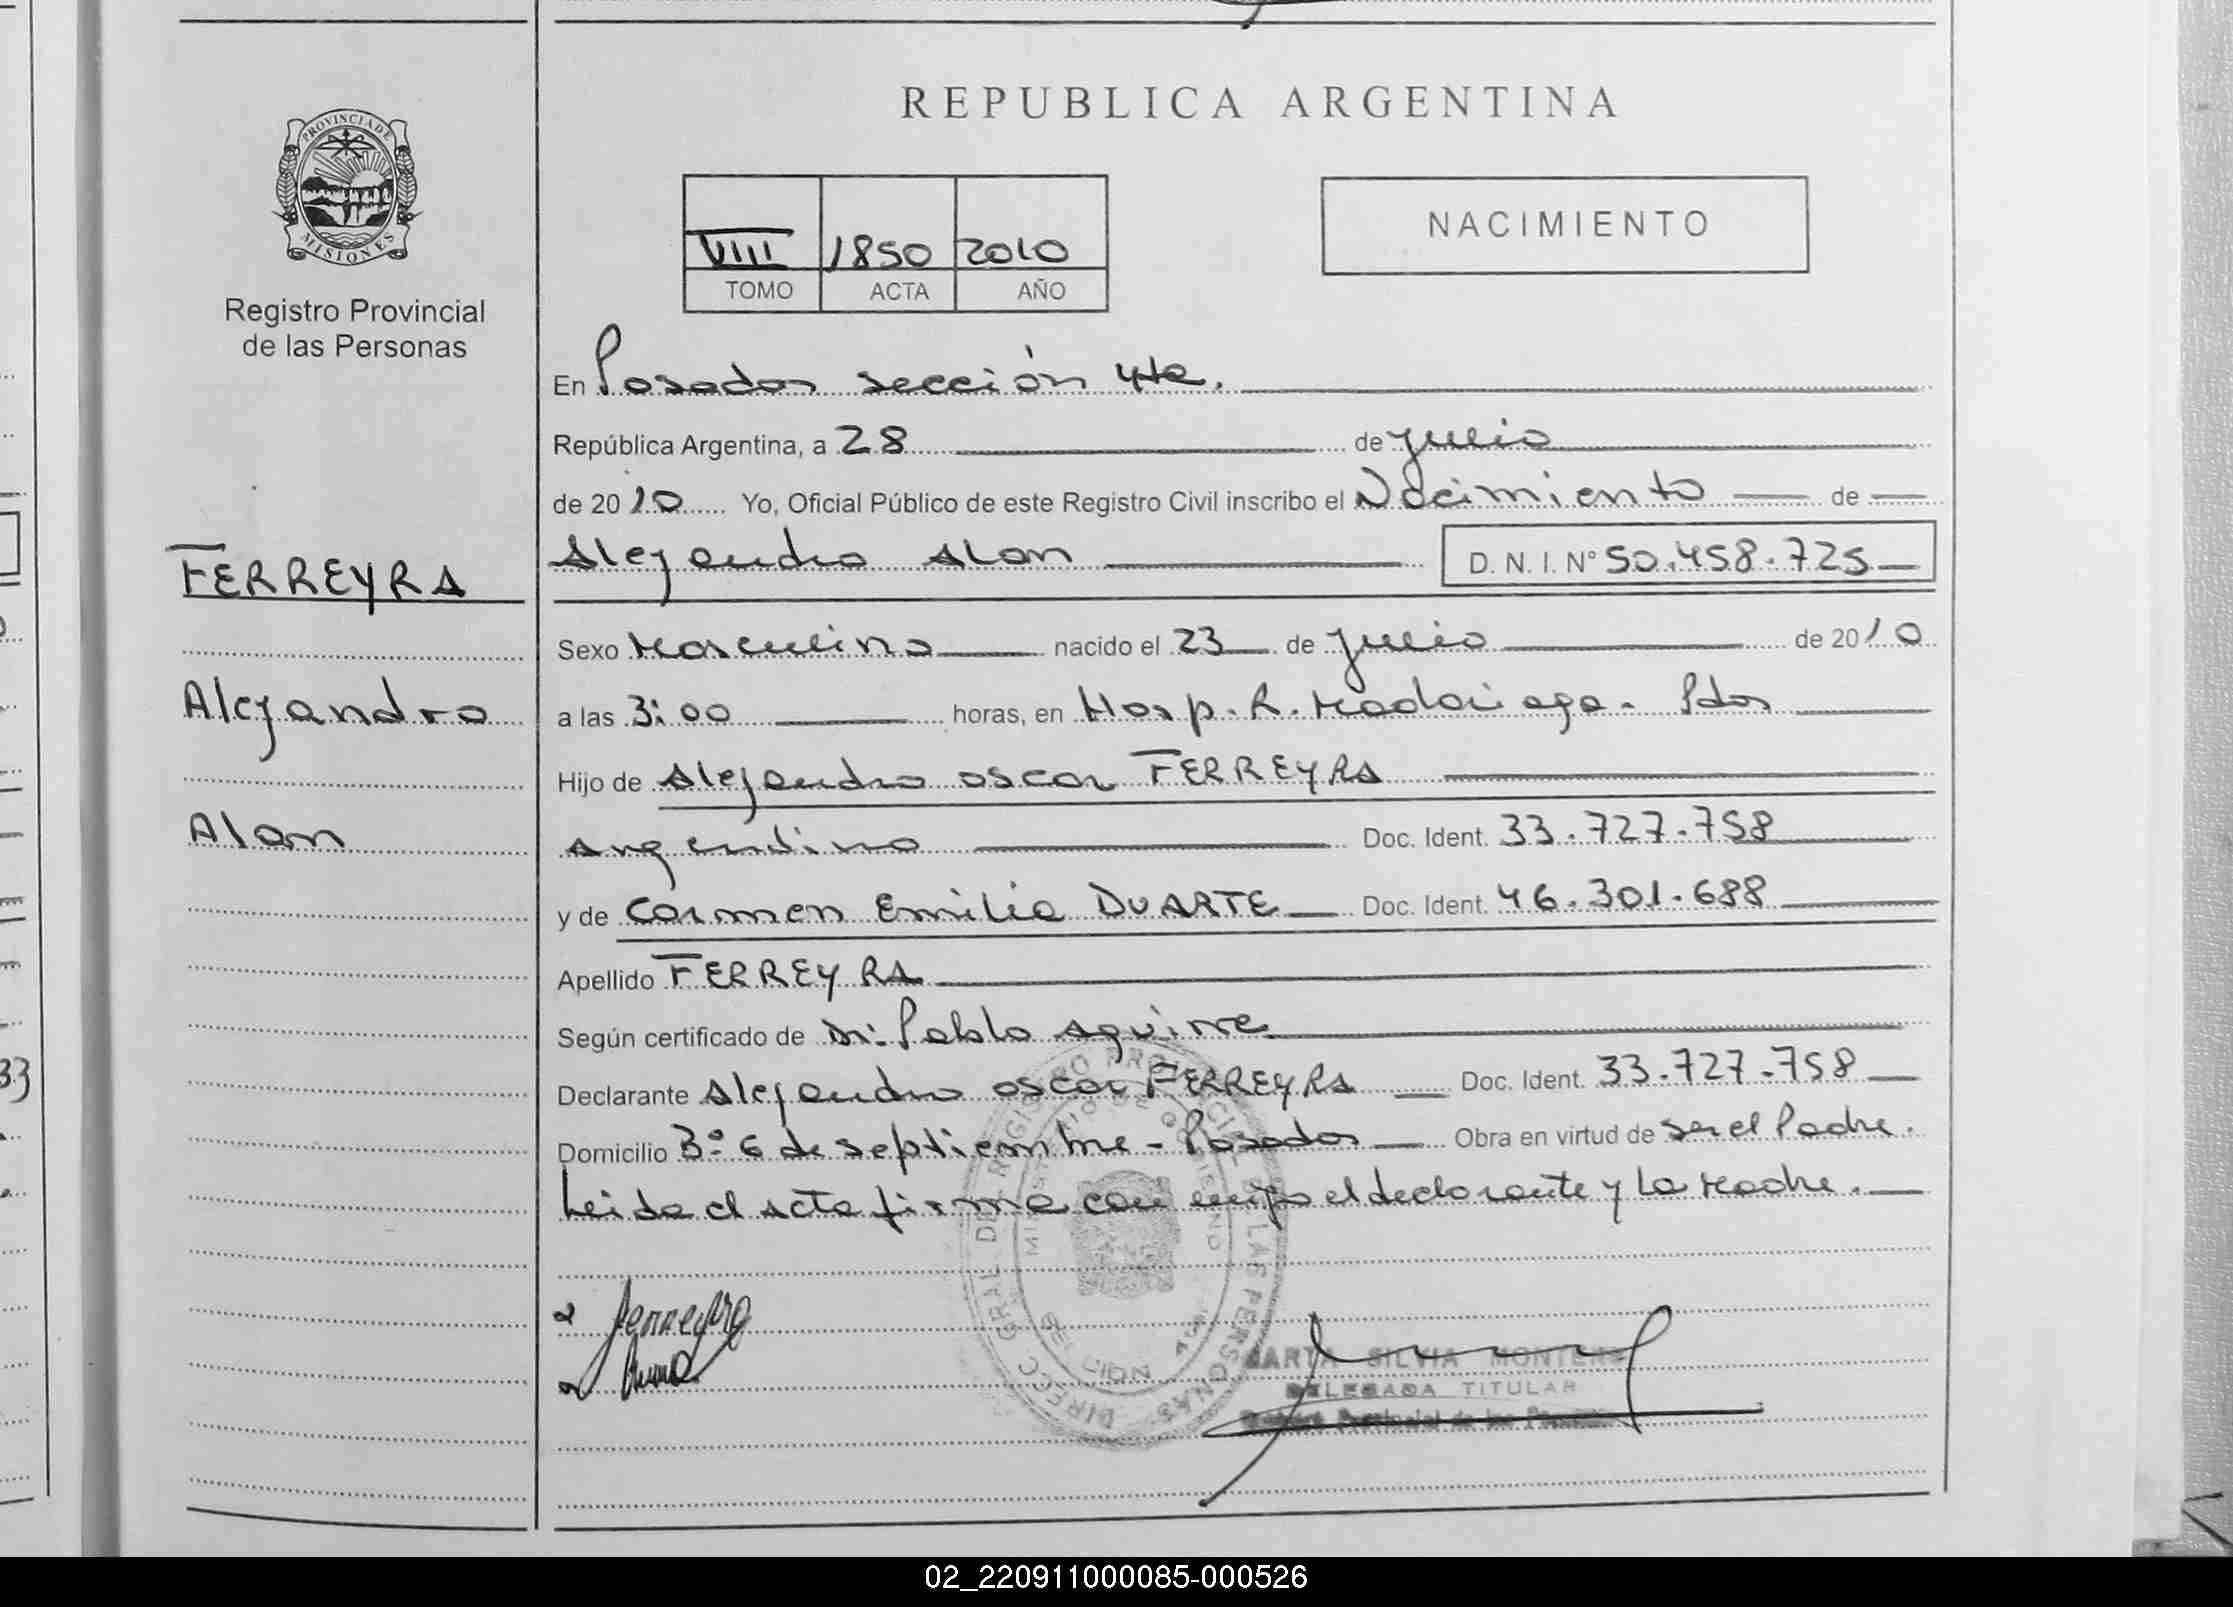 REPUBLICA ARGENTINA
PROVINCIA DE
MISIONES
Registro Provincial
de las Personas
VIII 1850 2010
TOMO ACTA AÑO
NACIMIENTO
En Posadas sección 4ta.
República Argentina, a 28 de julio
de 2010 Yo, Oficial Público de este Registro Civil inscribo el Nacimiento de
FERREYRA
Alejandro Alan D. N. I. Nº 50.458.725
Sexo Masculino nacido el 23 de julio de 2010
Alejandro
a las 3:00 horas, en Hosp. R. Madariaga - Pdas
Hijo de Alejandro Oscar FERREYRA
Alan
Argentino Doc. Ident. 33.727.758
y de Carmen Emilia DUARTE Doc. Ident. 46.301.688
Apellido FERREYRA
Según certificado de Dr. Pablo Aguirre
Declarante Alejandro Oscar FERREYRA Doc. Ident. 33.727.758
Domicilio Bº 6 de septiembre - Posadas Obra en virtud de ser el Padre.
Leida el acta firma con migo el declarante y La Madre.
Ferreyra
MARTA SILVIA MONTERO
DELEGADA TITULAR
Registro Provincial de las Personas
02_220911000085-000526